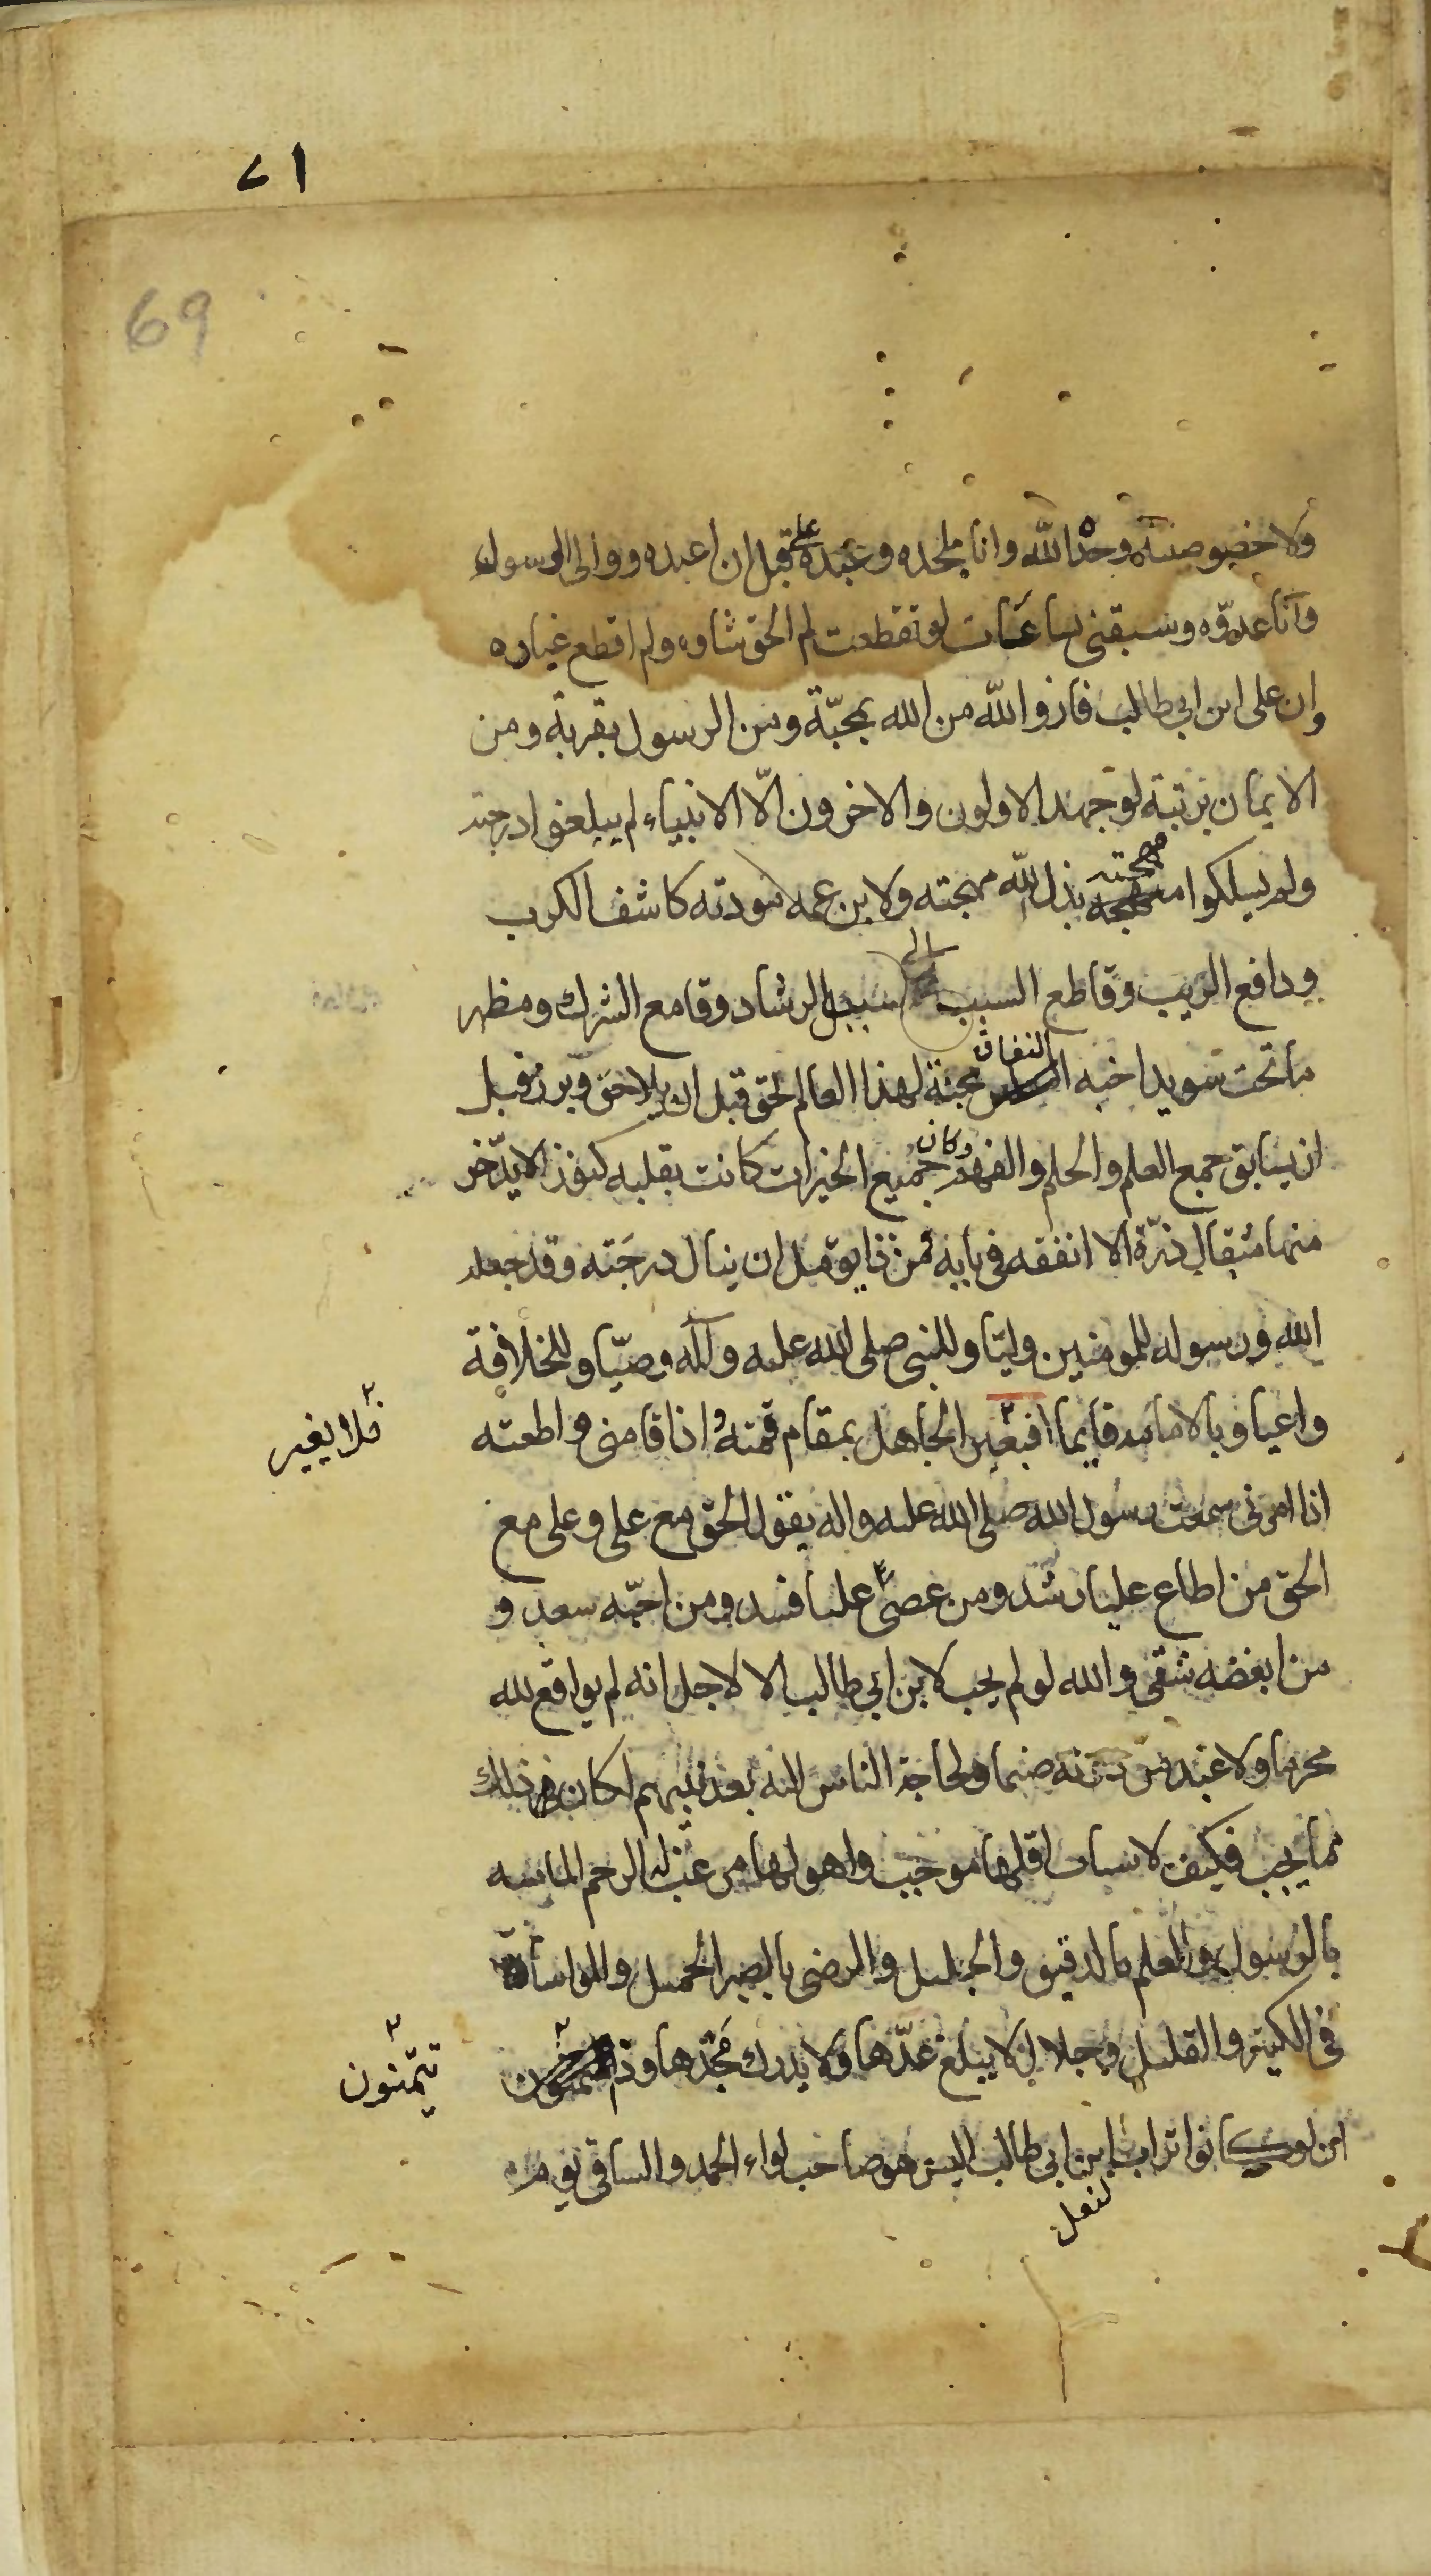 ٧١
69
ولا خصوصته وحد الله وانا ملحده وعبده على قبل ان اعبده ووالى الرسول
وانا عدوّه وسبقنى بساعات لو تقطعت لم الحق شاوه ولم اقطع غباره
وان على ابن ابي طالب فاز والله من الله بمحبّة ومن الرسول بقربة ومن
الايمان برتبة لو جهد الاولون والاخرون الّا الانبياء لم يبلغوا درجته
ولم يسلكوا منهجته بذل لله مهجته ولابن عمه مودته كاشف الكرب
ودافع الريب وقاطع السبب الى سبيل الرشاد وقامع الشرك ومظهر
ما تحت سويدا حبه النفاق محنة لهذا العالم لحق قبل ان يلاحق وبرز قبل
ان يسابق جمع العلم والحلم والفهم وكان جميع الخيرات كانت بقلبه كنوز الا يدّخر
منها مثقال ذرّة الا انفقه في بابه فمن ذا يومل ان ينال درجته وقد جعله
الله ورسوله للمومنين وليّا وللنبى صلى الله عليه وآله وصيّا وللخلافة
واعيا وبالامامه قايما افيغير الجاهل بمقام قمته اذا قامنى واطعته
فلا يغير
اذا امرنى سمعت رسول الله صلى الله عليه واله يقول الحق مع على وعلى مع
الحق من اطاع عليا رشد ومن عصى عليا فسد ومن احبّه سعد و
من ابغضه شقى والله لو لم يحب لابن ابي طالب الا لاجل انه لم يواقع لله
محرما ولا عبد من دونه صنما ولحاجة الناس اليه بعد نبيهم لكان في ذلك
مما يجب فكيف لاسباب اقلها موجب واهونها مرغب له الرحم الماسه
بالرسول والعلم بالدقيق والجليل والرضى بالصبر الجميل والمواساة
فى الكثير والقليل وخلال لا يبلغ عدّها ولا يدرك مجدها ودّ المتمنون
يتمنون
ان لو كانوا تراب ابن ابي طالب اليس هو صاحب لواء الحمد والساقى يوم
لنعل